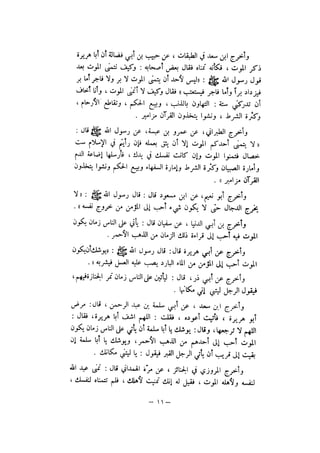 وأخرج ابن سعد في الطبقات ، عن حبيب بن أبي فضالة أن أبا هريرة
ذكر الموت ، فكأنه تمناه فقال بعض أصحابه : وكيف تتمنى الموت بعد
قول رسول الله ﷺ : «ليس لأحد أن يتمنى الموت لا بر ولا فاجر أما بر
فيزداد براً وأما فاجر فيستعتب» فقال وكيف لا أتمنى الموت ، وأنا أخاف
أن تدركني ستة : التهاون بالذنب ، وبيع الحكم ، وتقاطع الأرحام ،
وكثرة الشرط ، ونشوا يتخذون القرآن مزامير .
وأخرج الطبراني، عن عمرو بن عبسة، عن رسول الله ﷺ قال :
« لا يتمنى أحدكم الموت إلا أن يثق بعمله فإن رأيتم في الإسلام ست
خصال فتمنوا الموت وإن كانت نفسك في يدك ، فأرسلها إضاعة الدم
وأمارة الصبيان وكثرة الشرط وإمارة السفهاء وبيع الحكم ونشوا يتخذون
القرآن مزامير » .
وأخرج أبو نعيم، عن ابن مسعود قال : قال رسول الله ﷺ : «لا
يخرج الدجال حتى لا يكون شيء أحب إلى المؤمن من خروج نفسه» .
وأخرج بن أبي الدنيا ، عن سفيان قال : يأتي على الناس زمان يكون
الموت فيه أحب إلى قراءة ذلك الزمان من الذهب الأحمر .
وأخرج عن أبي هريرة قال: قال رسول الله ﷺ : «يوشك‌أن‌يكون
الموت أحب إلى المؤمن من الماء البارد يصب عليه العسل فيشربه» .
وأخرج عن أبي ذر، قال : ليأتين على الناس زمان تمر الجنازة‌فيهم،
فيقول الرجل ليتني إني مكانها .
وأخرج ابن سعد ، عن أبي سلمة بن عبد الرحمن ، قال: مرض
أبو هريرة ، فأتيت أعوده ، فقلت : اللهم اشف أبا هريرة، فقال :
اللهم لا ترجعها، وقال: يوشك يا أبا سلمة أن يأتي على الناس زمان يكون
الموت أحب إلى أحدهم من الذهب الأحمر، ويوشك يا أبا سلمة إن
بقيت إلى قريب أن يأتي الرجل القبر فيقول : يا ليتني مكانك .
وأخرج المروزي في الجنائز ، عن مرة الهمداني قال : تمنى عبد الله
لنفسه ولأهله الموت ، فقيل له إنك تمنيت لأهلك ، فلم تتمناه لنفسك ،
— ١٦ —